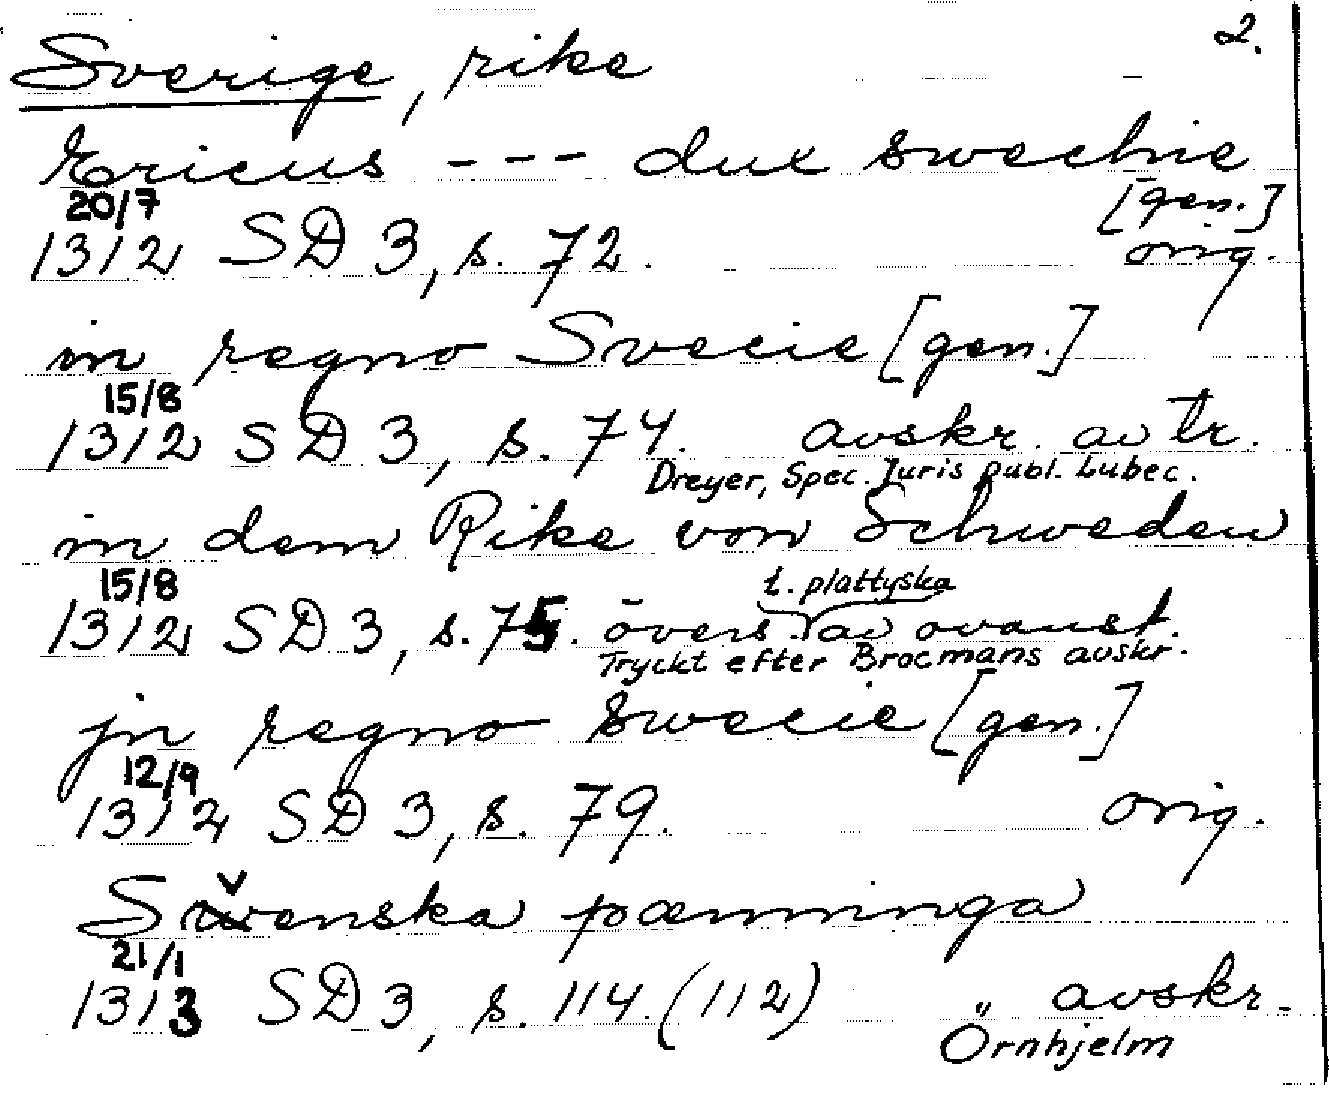 2.
Sverige, rike
Ericus --- dux swechie
[gen.]
20/7
1312 SD 3, s. 72. orig.
in regno Svecie [gen.]
15/8
1312 SD 3, s. 74. avskr. av tr.
Dreyer, Spec. Juris publ. Lubec.
in dem Rike von Schweden
15/8 t. plattyska
1312 SD 3, s. 75. övers. av ovanst.
Tryckt efter Brocmans avskr.
jn regno swecie [gen.]
12/9
1312 SD 3, s. 79. orig.
Svenska pænninga
21/1
1313 SD 3, s. 114. (112) " avskr.
Örnhjelm